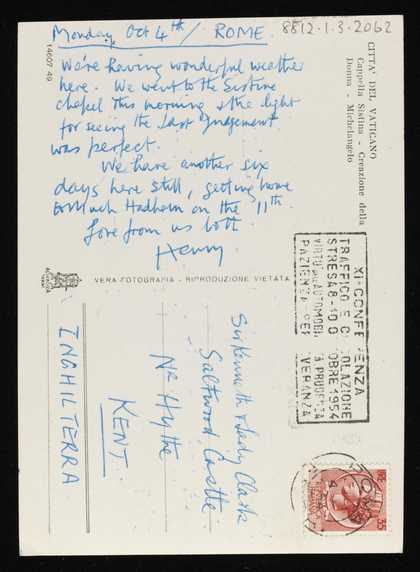 8812.1.3.2062
Monday, Oct 4th / ROME.
We're having wonderful weather
here. We went to the Sistine
chapel this morning & the light
for seeing the Last Judgement
was perfect.
We have another six
days here still, getting home
to Much Hadham on the 11th.
Love from us both
Henry
14607 49
CITTA' DEL VATICANO
Cappella Sistina - Creazione della
Donna - Michelangelo
VERA FOTOGRAFIA - RIPRODUZIONE VIETATA
XI CONFERENZA
TRAFFICO E CIRCOLAZIONE
STRESA 8-10 OTTOBRE 1954
VIRTÙ AUTOMOBI PRUDENZA
PAZIENZA PER VERANZA
Sir Kenneth & Lady Clark
Saltwood Castle
Nr Hythe
KENT.
INGHILTERRA
35